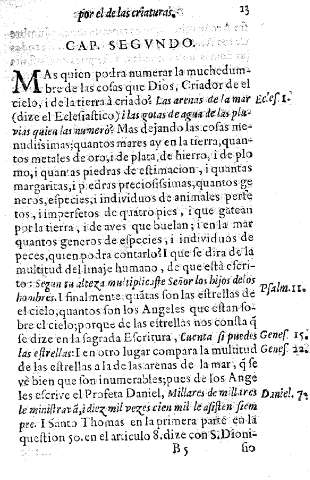 por el de las criaturas. 13
CAP. SEGVNDO.
MAs quien podra numerar la muchedum-
bre de las cosas que Dios, Criador de el
cielo, i de la tierra à criado? Las arenas de la mar Ecles. 1.
(dize el Eclesiastico) i las gotas de agua de las plu-
vias quien las numerò? Mas dejando las cosas me-
nudissimas; quantos mares ay en la tierra, quan-
tos metales de oro, i de plata, de hierro, i de plo
mo, i quantas piedras de estimacion, i quantas
margaritas, i piedras preciosissimas, quantos ge
neros, especies, i individuos de animales perfe
tos, i imperfetos de quatro pies, i que gatean
por la tierra, i de aves que buelan; i en la mar
quantos generos de especies, i individuos de
peces, quien podra contarlo? I que se dira de la
multitud del linaje humano, de que està escri-
to: Segun tu alteza multiplicaste Señor los hijos de los Psalm. 11.
hombres. I finalmente, quãtas son las estrellas de
el cielo, quantos son los Angeles que estan so-
bre el cielo; porque de las estrellas nos consta q̃
se dize en la sagrada Escritura, Cuenta si puedes Genes. 15.
las estrellas: I en otro lugar compara la multitud Genes. 22.
de las estrellas a la de las arenas de la mar, q̃ se
vè bien que son inumerables; pues de los Ange
les escrive el Profeta Daniel, Millares de millares Daniel. 7.
le ministravã, i diez mil vezes cien mil le asisten siem
pre. I Santo Thomas en la primera parte en la
question 50. en el articulo 8. dize con S. Dioni-
B 5 sio